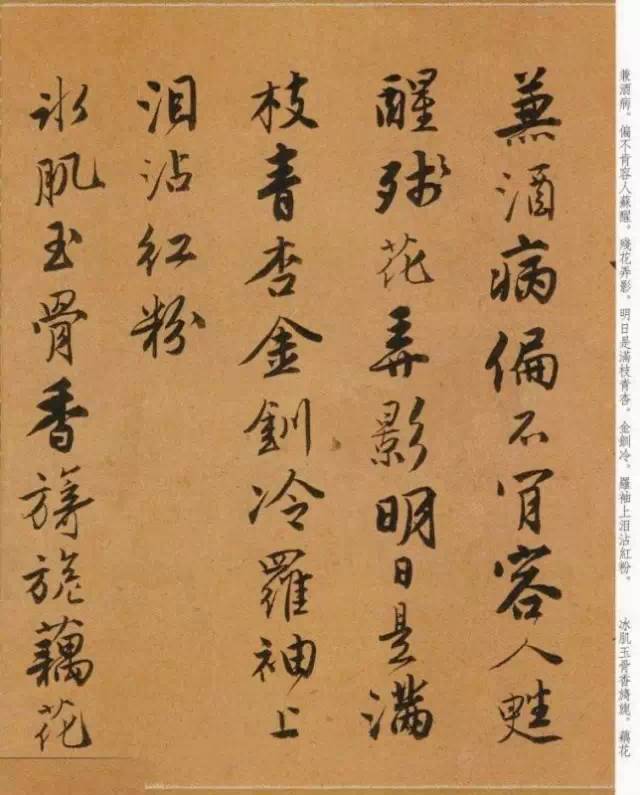 兼酒病偏不肯容人甦
醒殘花弄影明日是滿
枝青杏金釧冷羅袖上
泪沾紅粉
冰肌玉骨香旖旎藕花
兼酒病。偏不肯容人蘇醒。殘花弄影。明日是滿枝青杏。金釧冷。羅袖上泪沾紅粉。 冰肌玉骨香旖旎。藕花